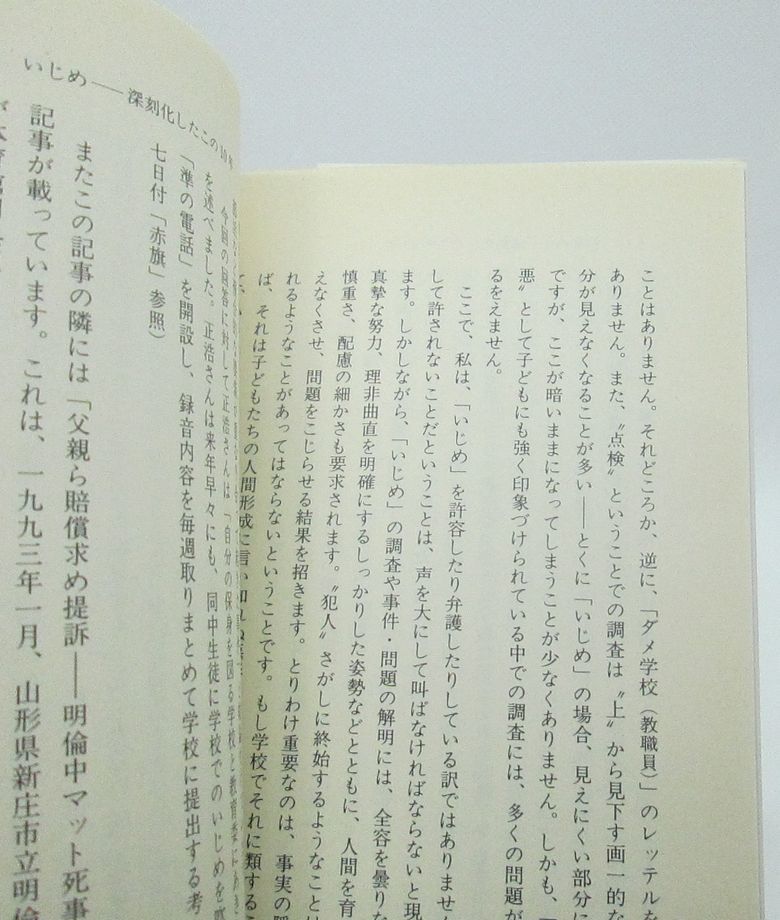 ことはありません。それどころか、逆に、「ダメ学校（教職員）」のレッテルを
ありません。また、〝点検〟ということでの調査は〝上〟から見下す画一的な
分が見えなくなることが多い――とくに「いじめ」の場合、見えにくい部分に
ですが、ここが暗いままになってしまうことが少なくありません。しかも、「
悪〟として子どもにも強く印象づけられている中での調査には、多くの問題が
るをえません。
ここで、私は、「いじめ」を許容したり弁護したりしている訳ではありません
して許されないことだということは、声を大にして叫ばなければならないと現
ます。しかしながら、「いじめ」の調査や事件・問題の解明には、全容を曇りな
真摯な努力、理非曲直を明確にするしっかりした姿勢などとともに、人間を育
慎重さ、配慮の細かさも要求されます。〝犯人〟さがしに終始するようなことは
えなくさせ、問題をこじらせる結果を招きます。とりわけ重要なのは、事実の
れるようなことがあってはならないということです。もし学校でそれに類するこ
ば、それは子どもたちの人間形成に言い
いじめ――深刻化したこの10年
今回の回答に対して正浩さんは「自分の保身を図る学校と教育委
を述べました。正浩さんは来年早々にも、同中生徒に学校でのいじめを
「準の電話」を開設し、録音内容を毎週取りまとめて学校に提出する考
七日付「赤旗」参照）
またこの記事の隣には「父親ら賠償求め提訴――明倫中マット死事
記事が載っています。これは、一九九三年一月、山形県新庄市立明倫